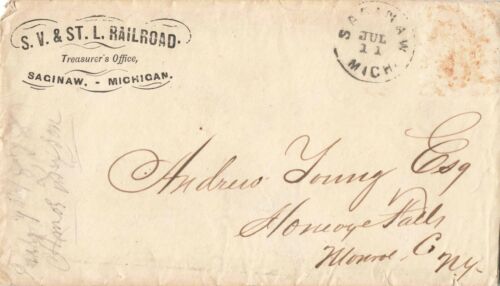 S. V. & ST. L. RAILROAD.
Treasurer's Office,
SAGINAW, - MICHIGAN.
SAGINAW
JUL
11
MICH.
Andrew Young Esq
Honeoye Falls
Monroe Co
N.Y.
July